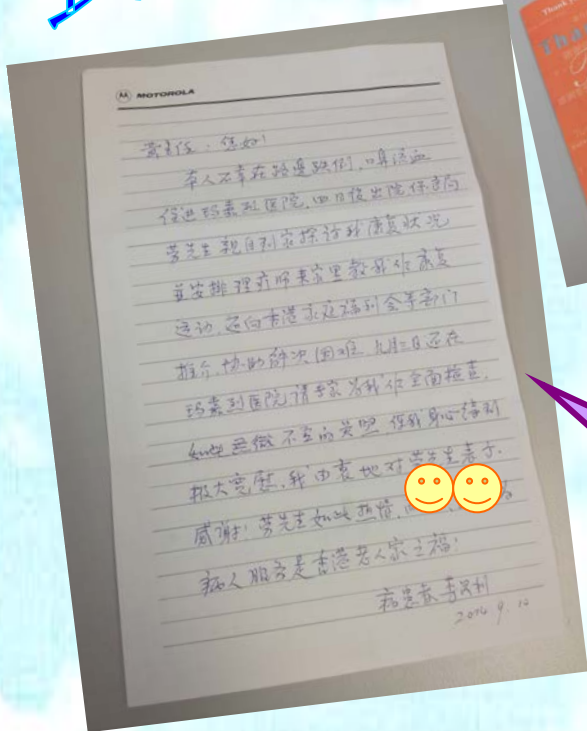 Thank
MOTOROLA
黄主任：您好！
本人不幸在路边跌倒，口鼻流血
住进玛嘉烈医院，四日后出院，保
劳先生亲自到家探访我康复状况
并安排理疗师来家里教我作康复
运动，还向香港家庭福利会等部门
推介，协助解决困难。九月二日还在
玛嘉烈医院请专家为我作全面检查。
如此无微不至的关照，使我身心得到
极大宽慰，我由衷地对劳先生表示
感谢！劳先生如此热情，
病人服务是香港老人家之福！
病患者李
2014.9.12